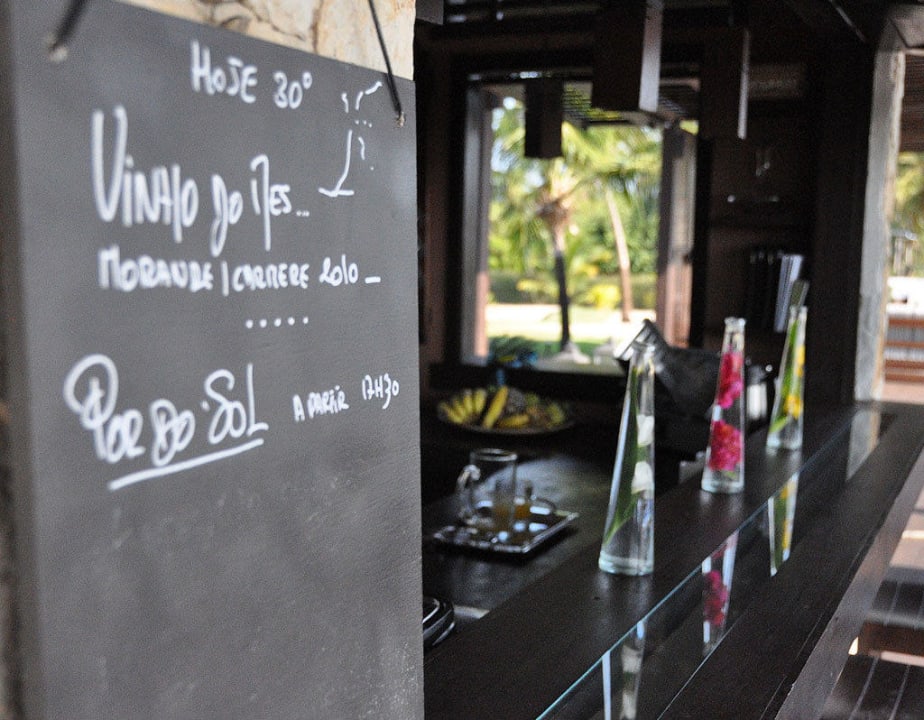 HOJE 30°
VINHO DO MES...
MORANDE | CARRERE 2010 _
.....
POR DO SOL A PARTIR 17H30